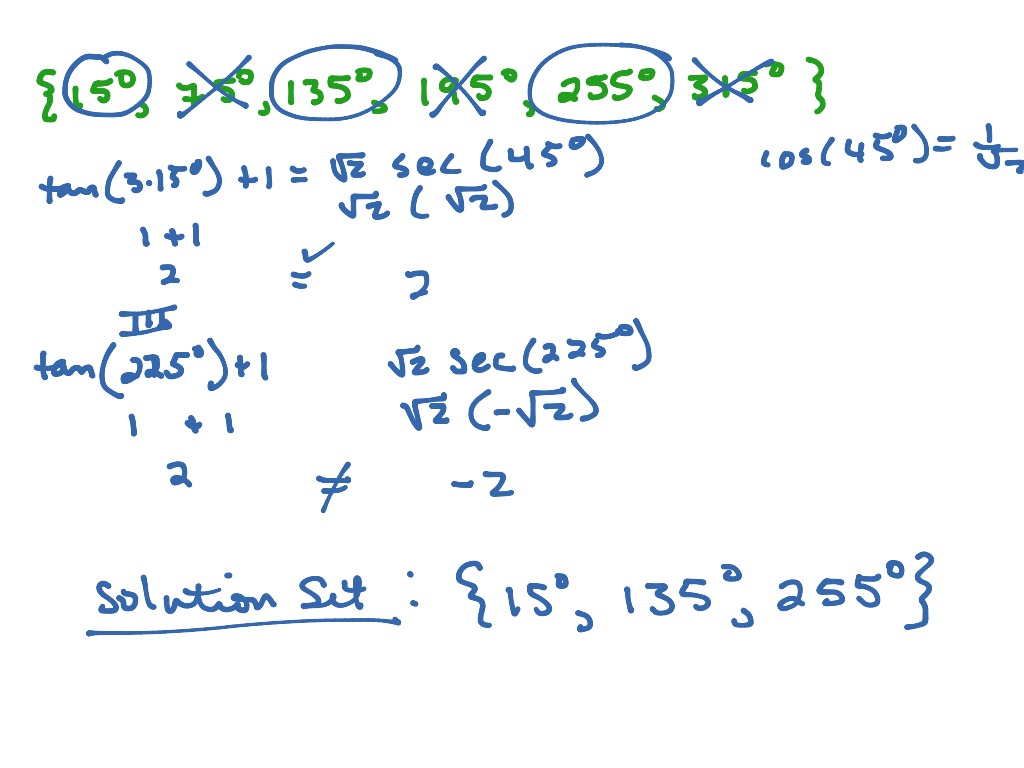 {15°, 75°, 135°, 195°, 255°, 315°}
tan(3·15°) + 1 = √2 sec(45°) cos(45°) = 1/√2
√2 (√2)
1 + 1
2 = ✓ 2
III
tan(225°) + 1 √2 sec(225°)
1 + 1 √2 (-√2)
2 ≠ -2
Solution Set : {15°, 135°, 255°}